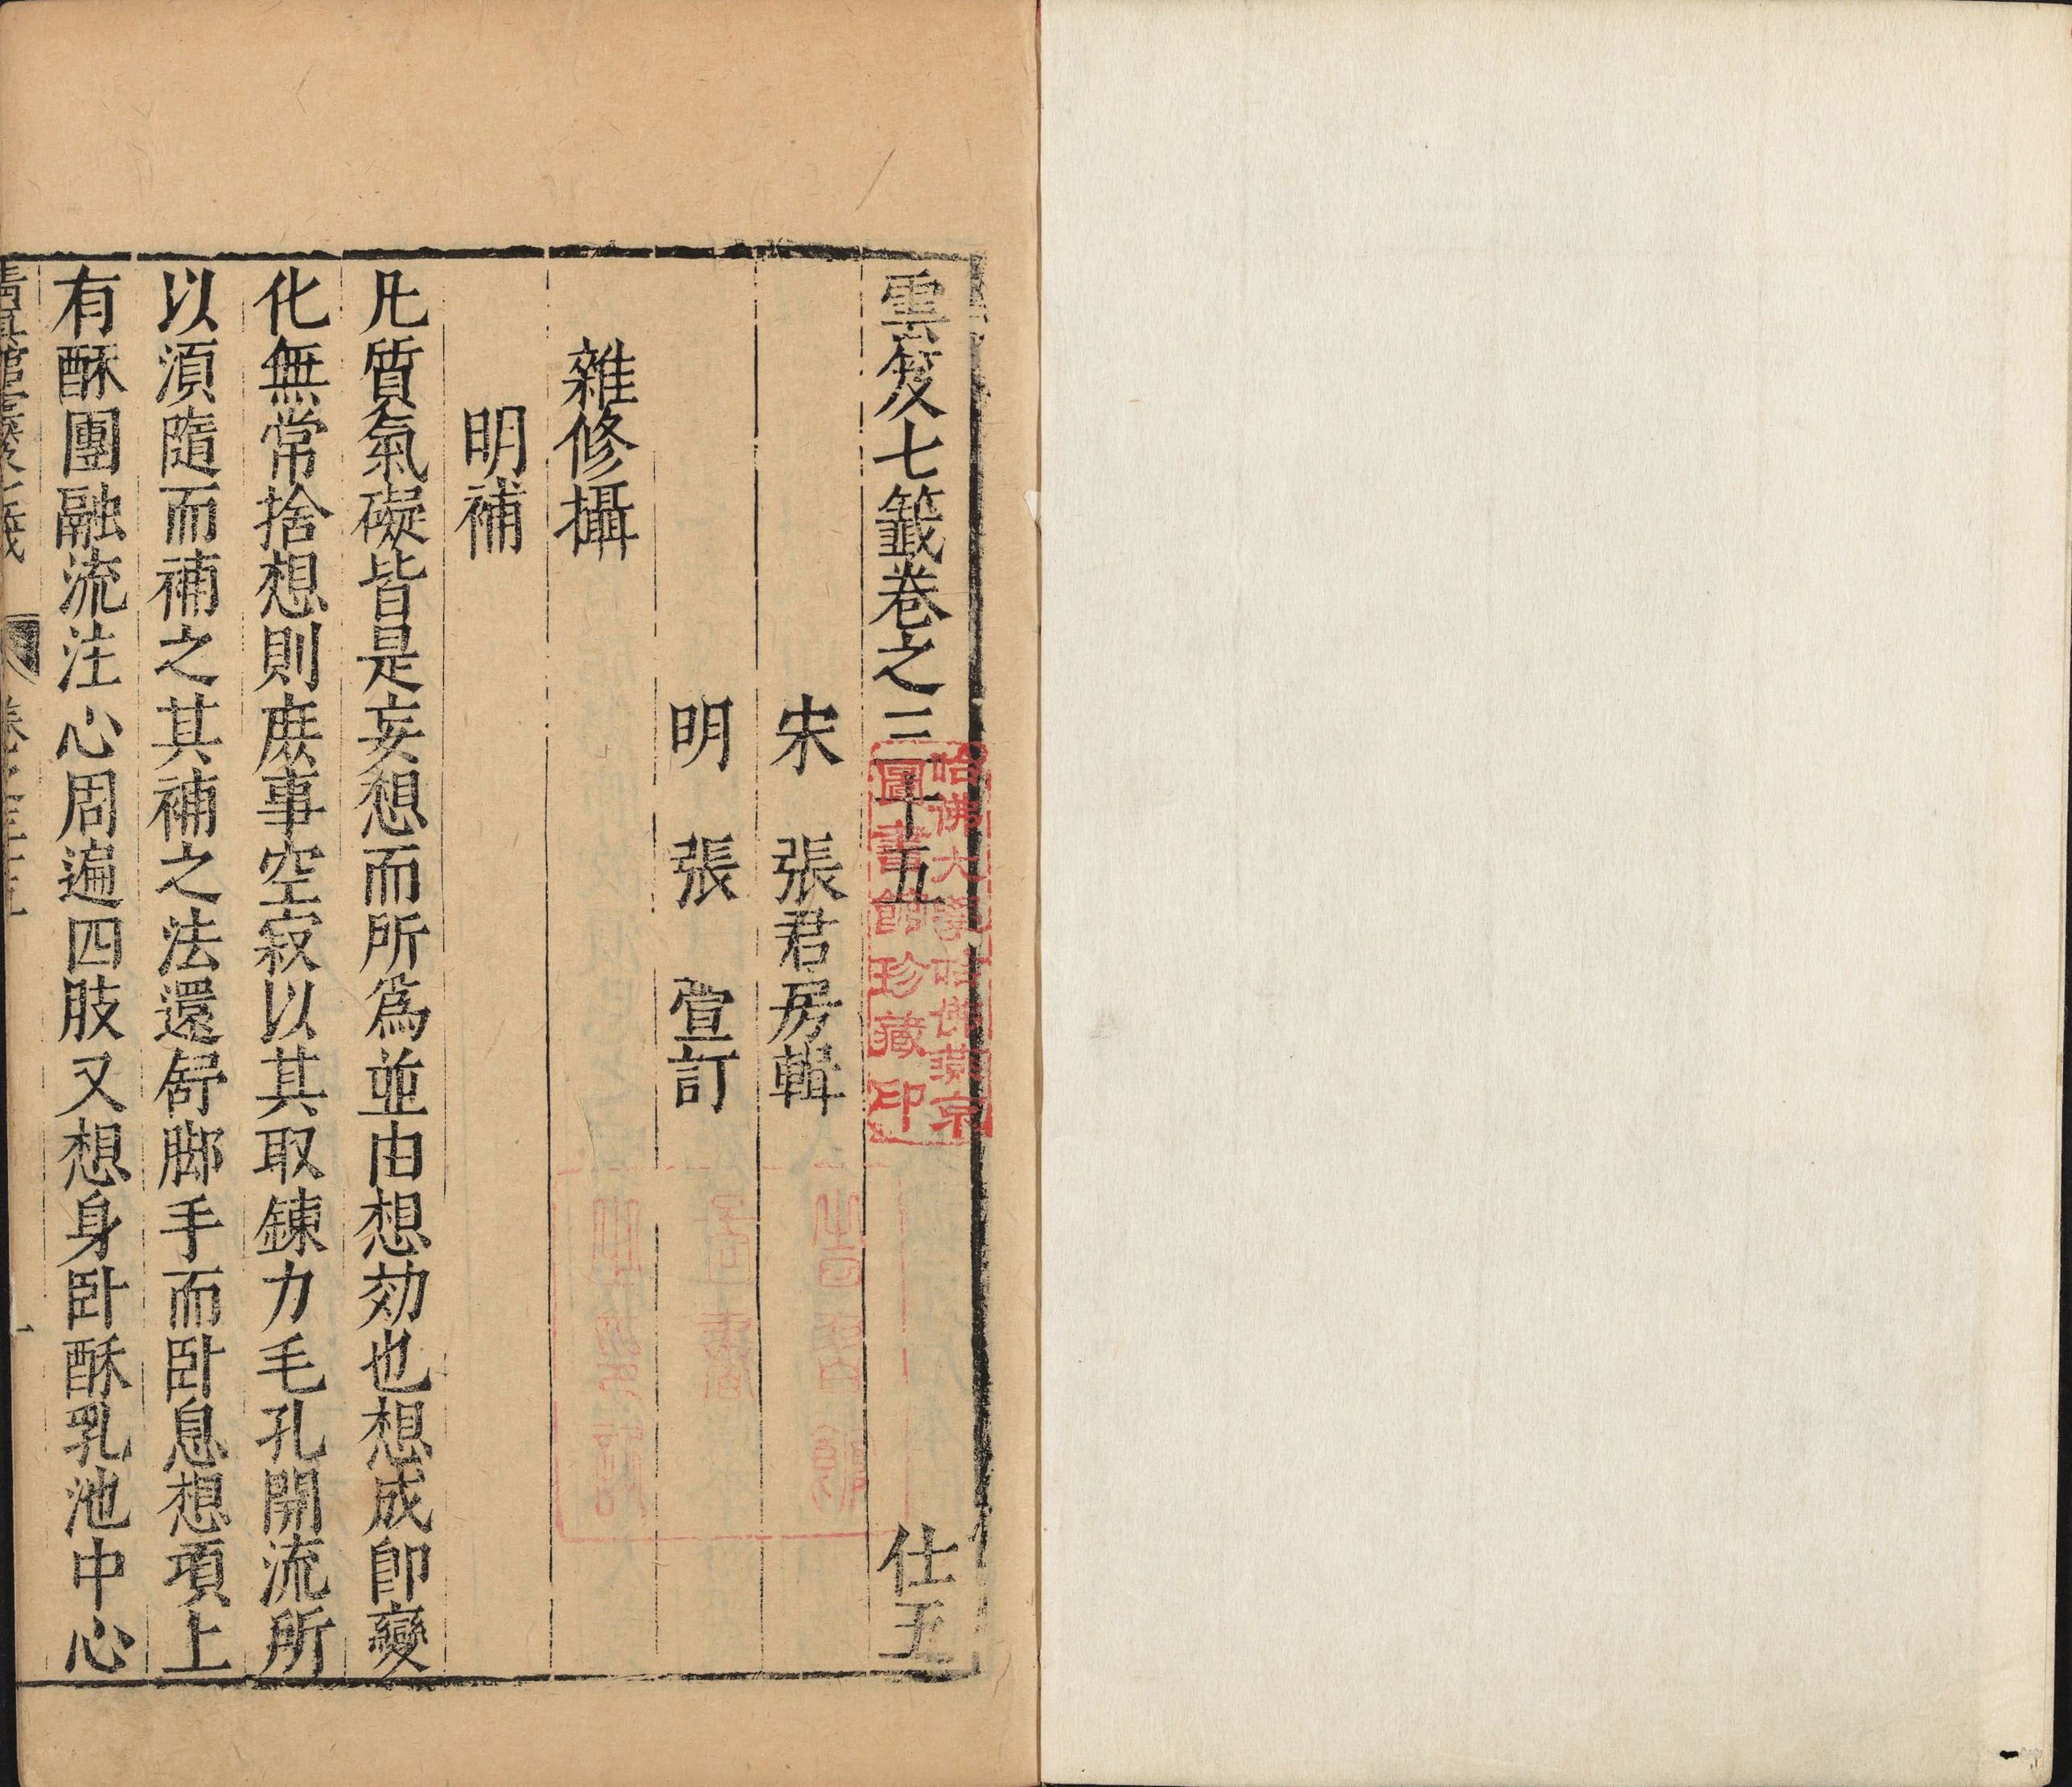 雲笈七籤卷之三十五 仕五
宋 張君房輯
明 張 萱訂
雜修攝
明補
凡質氣礙皆是妄想而所爲並由想効也想成卽變
化無常捨想則庶事空寂以其取鍊力毛孔開流所
以須隨而補之其補之法還舒脚手而卧息想項上
有酥團融流注心周遍四肢又想身卧酥乳池中心
清真館雲笈七籤 卷之三十五 一
哈佛大學哈佛燕京
圖書館珍藏印